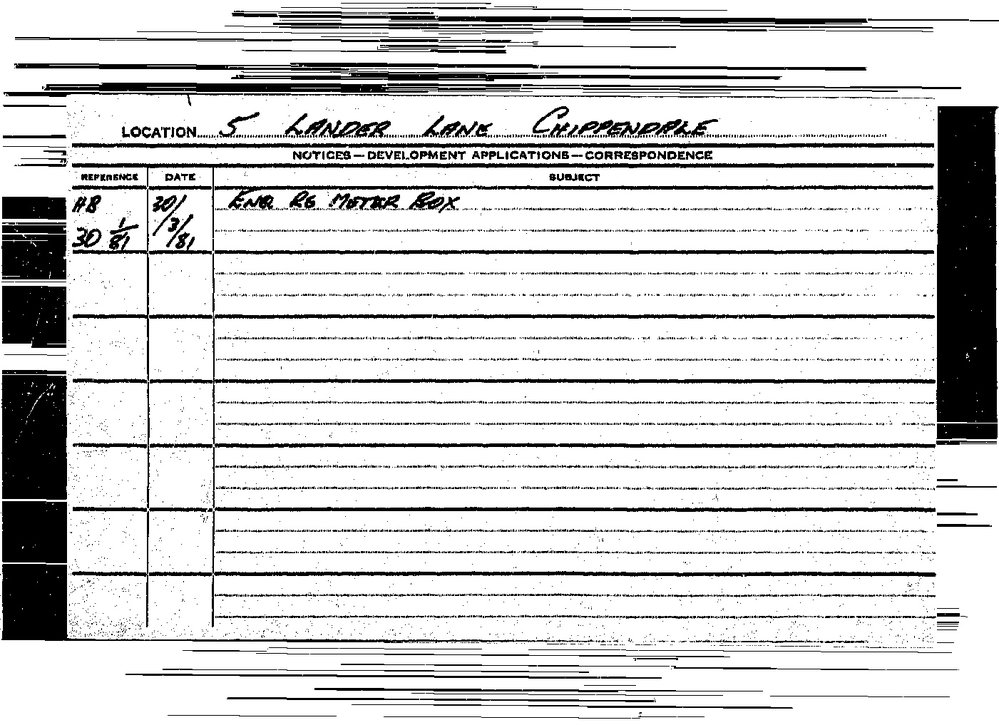 LOCATION 5 LANDER LANE CHIPPENDALE
NOTICES — DEVELOPMENT APPLICATIONS — CORRESPONDENCE
REFERENCE DATE SUBJECT
HB 30/ ENQ RG METER BOX
30 1/81 /3/81